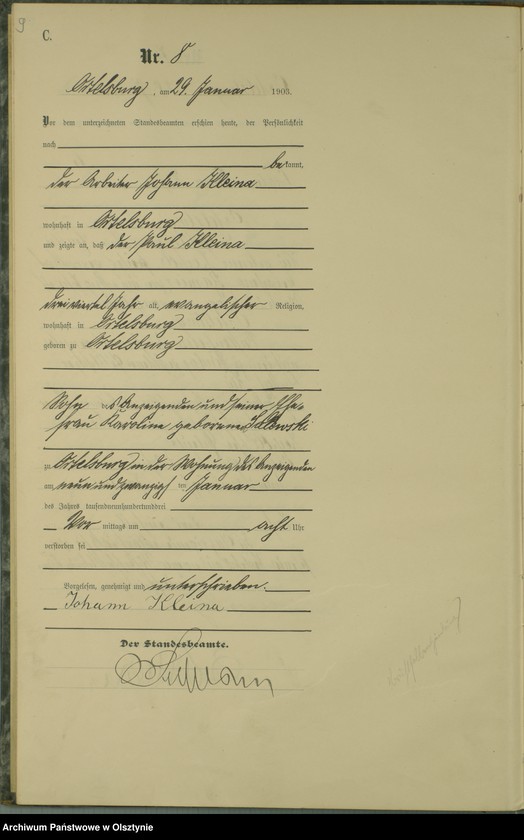 9
C.
Nr. 8
Ortelsburg, am 29. Januar 1903.
Vor dem unterzeichneten Standesbeamten erschien heute, der Persönlichkeit
nach
bekannt,
der Arbeiter Johann Kleina
wohnhaft in Ortelsburg
und zeigte an, daß der Paul Kleina
dreiviertel Jahr alt, evangelischer Religion,
wohnhaft in Ortelsburg
geboren zu Ortelsburg
Sohn des Anzeigenden und seiner Ehe-
frau Karoline geborenen
zu Ortelsburg in der Wohnung des Anzeigenden
am neunundzwanzigsten Januar
des Jahres tausendneunhundertunddrei
Vor mittags um acht Uhr
verstorben sei
Vorgelesen, genehmigt und unterschrieben.
Johann Kleina
Der Standesbeamte.
Archiwum Państwowe w Olsztynie